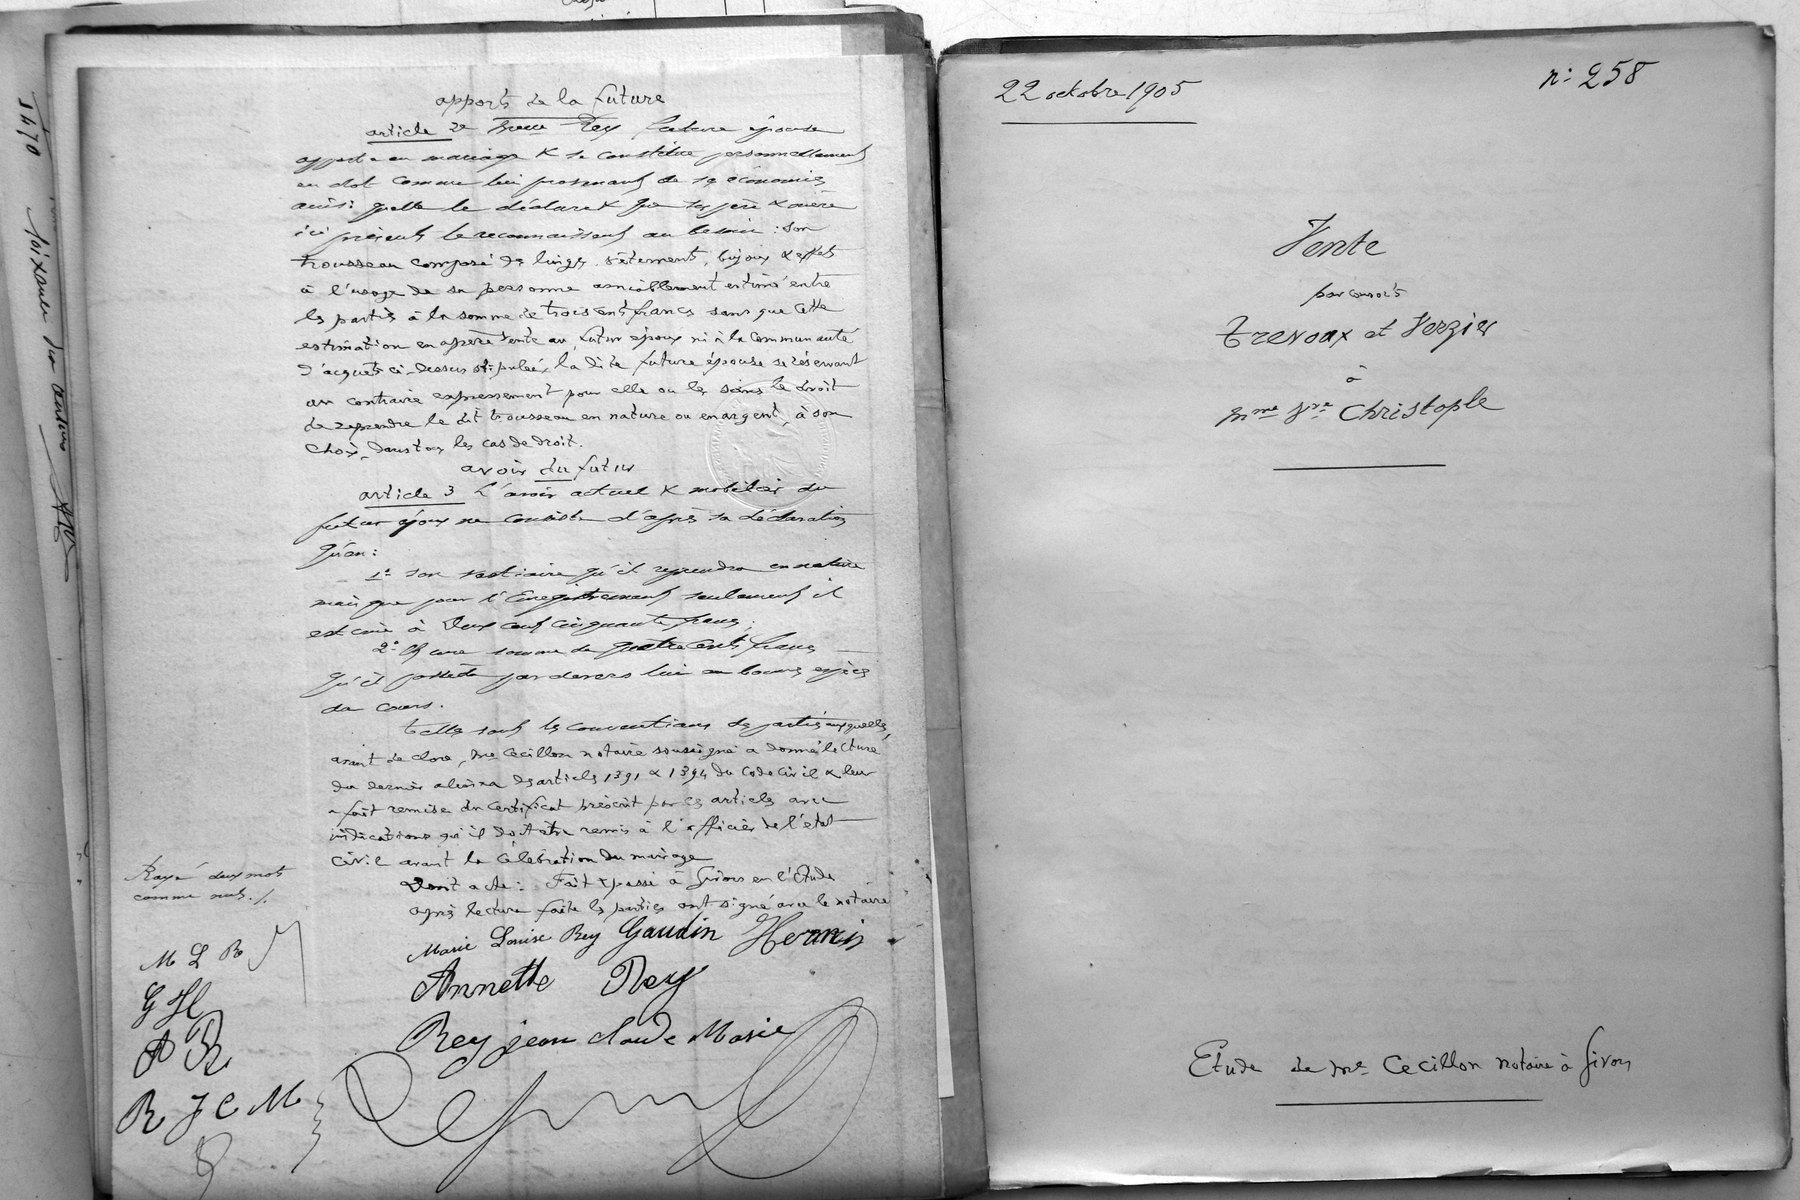 apports de la future
article 2e Melle Rey future épouse
apporte en mariage & se constitue personnellement
en dot comme lui provenant de ses économies
ainsi quelle le déclare & que ses père & mère
ici présents le reconnaissent au besoin : son
trousseau composé de linges, vêtements, bijoux & effets
à l'usage de sa personne amiablement estimé entre
les parties à la somme de trois cents francs sans que cette
estimation en opère vente au futur époux ni à la communauté
d'acquêts ci-dessus stipulée, la dite future épouse se réservant
au contraire expressement pour elle ou les siens le droit
de reprendre le dit trousseau en nature ou en argent, à son
choix, dans tous les cas de droit.
avoir du futur
article 3 L'avoir actuel & mobilier du
futur époux ne consiste d'après sa déclaration
qu'en :
1° son vestiaire qu'il reprendra en nature
mais que pour l'Enregistrement seulement il
est à Deux cent cinquante francs ;
2° Et une somme de quatre cents francs
qu'il possède par devers lui en bonnes espèces
du cours.
Telles sont les conventions des parties auxquelles,
avant de clore, Me Cecillon notaire soussigné a donné lecture
du dernier alinéa des articles 1391 & 1394 du Code Civil & leur
a fait remise du certificat préscrit par ces articles avec
indications qu'il doit être remis à l'officier de l'état
civil avant la célébration du mariage
Dont acte : Fait & passé à Givors en l'Etude
après lecture faite les parties ont signé avec le notaire
Rayé deux mots
comme nuls ./.
Marie Louise Rey Gaudin
Annette Rey
Rey jean claude Marie
M L R
G H
A R
R J C M
22 octobre 1905
n° 258
Vente
par consorts
Trevoux et Verzier
à
Mme Vve Christople
Etude de Me Cecillon notaire à Givors